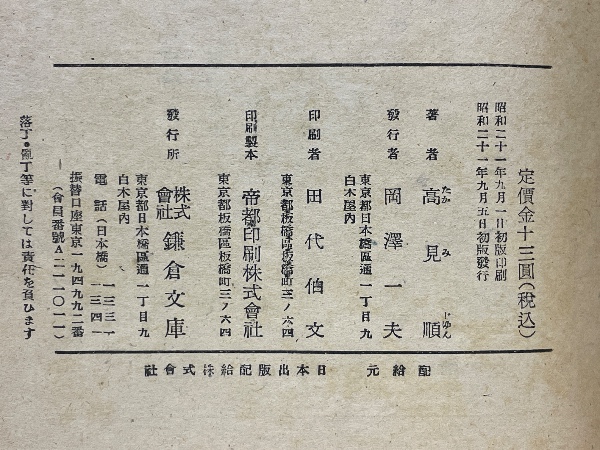 定價金十三圓(稅込)
昭和二十一年九月一日初版印刷
昭和二十一年九月五日初版發行
著者 高見順
たか み じゆん
發行者 岡澤一夫
東京都日本橋區通一丁目九
白木屋內
印刷者 田代伯文
東京都板橋區板橋町三ノ六四
印刷製本 帝都印刷株式會社
東京都板橋區板橋町三ノ六四
發行所 株式會社 鎌倉文庫
東京都日本橋區通一丁目九
白木屋內
電話(日本橋)
振替口座東京一九四九九二番
(會員番號A二一一〇一一)
落丁・亂丁等に對しては責任を負ひます
配給元 日本出版配給株式會社